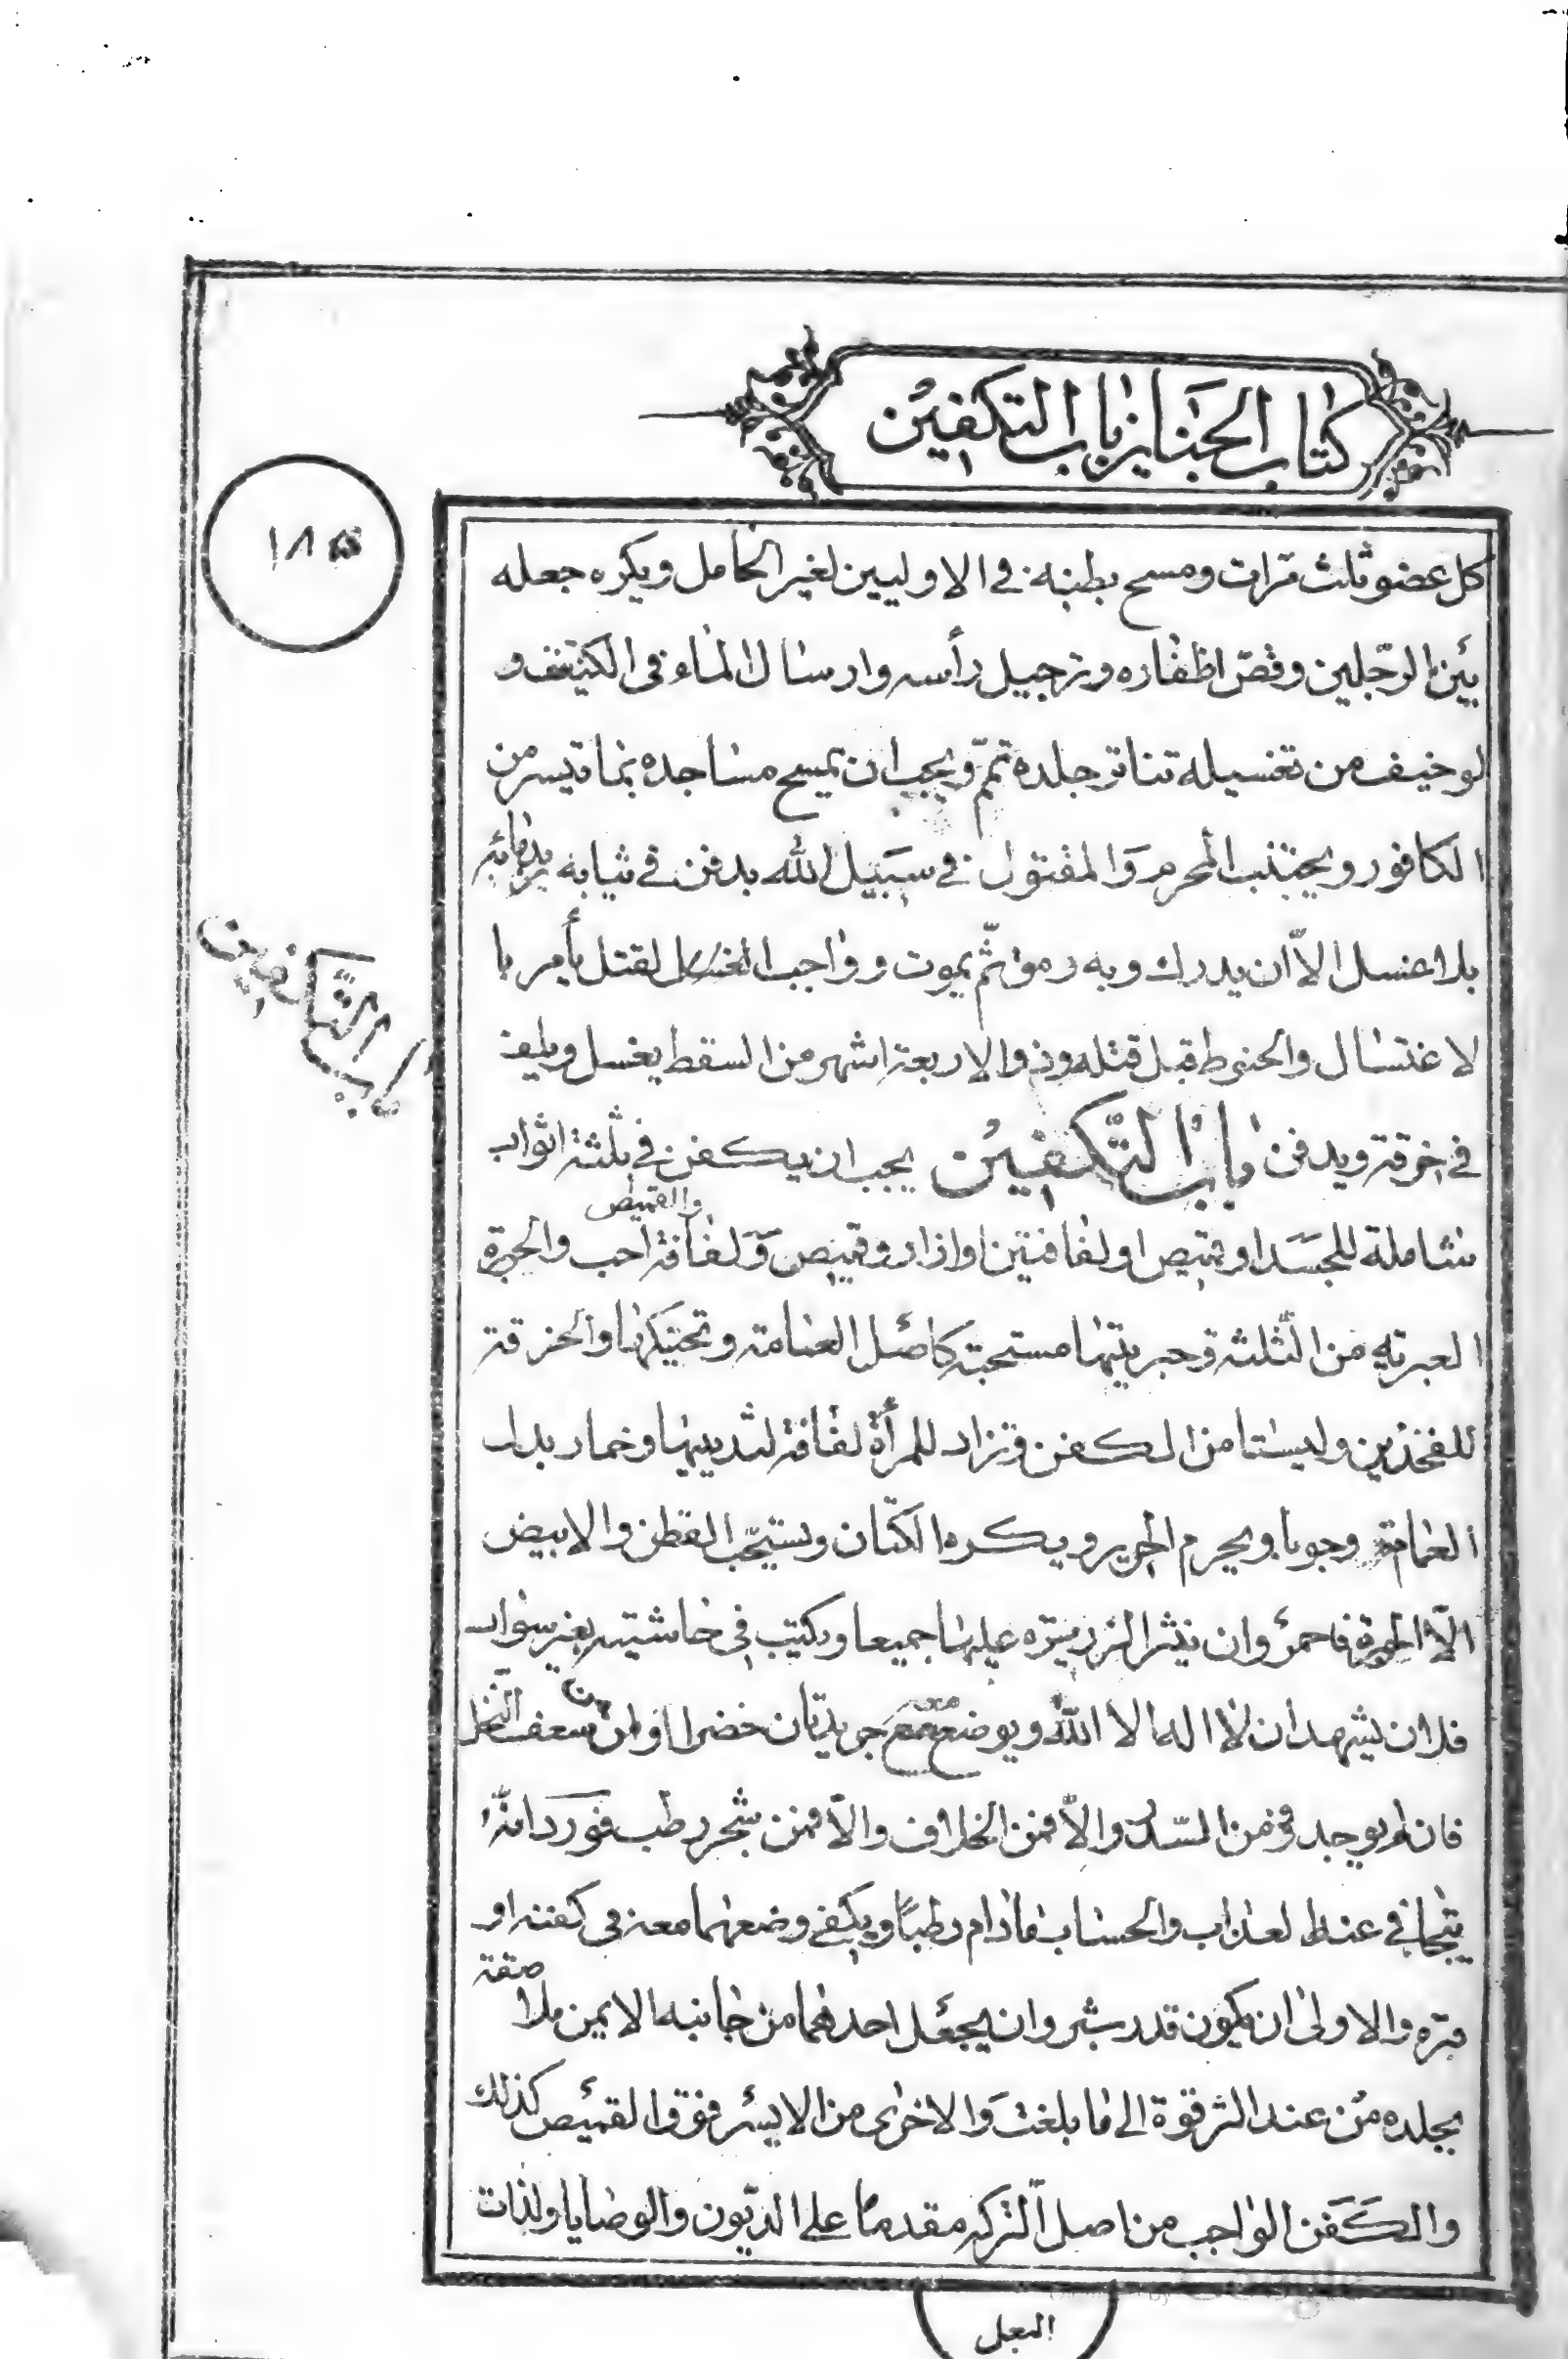 كتاب الجنايز باب التكفين
١٨٥
كل عضو ثلث مرات ومسح بطنه في الاوليين لغير الحامل ويكره جعله
بين الرجلين وقص اظفاره وترجيل رأسه وارسال الماء في الكنيف و
لو خيف من تغسيله تناثر جلده تمّم ويجب ان يمسح مساجده بما تيسر من
الكافور ويجتنب المحرم والمقتول في سبيل الله يدفن في ثيابه بدمائه
بلا غسل الّا ان يدرك وبه رمق ثمّ يموت و واجب القتل يأمر با
لاغتسال والحنوط قبل قتله وذو الاربعة اشهر من السقط يغسل ويلف
في خرقة ويدفن باب التّكفين يجب ان يكفن في ثلثة اثواب
والقميص
شاملة للجسد او قميص ولفافتين وازار وقميص ولفافة احب والحبرة
العبرية من الثّلثة وحبريتها مستحبة كاصل العمامة وتحنيكها والخرقة
للفخذين وليستا من الكفن وتزاد للمرأة لفافة لثدييها وخمار بدل
العمامة وجوبا ويحرم الحرير ويكره الكتّان ويستحبّ القطن والابيض
الّا الحبرة فاحمر وان ينثر الذريرة عليها جميعا ويكتب في حاشيته بغير سواد
فلان يشهد ان لا اله الا الله ويوضع معه جريدتان خضراوان من سعف النّخل
فان لم يوجد فمن السّدر والّا فمن الخلاف والّا فمن شجر رطب فورد انّه
يتجافى عنه العذاب والحساب مادام رطبا ويكفي وضعهما معه في كفنه او
قبره والاولى ان يكون قدر شبر وان يجعل احدهما من جانبه الايمن ملاصقة
بجلده من عند الترقوة الى ما بلغت والاخرى من الايسر فوق القميص كذلك
والكفن الواجب من اصل التّركه مقدما على الديون والوصايا ولذات
باب التّكفين
البعل